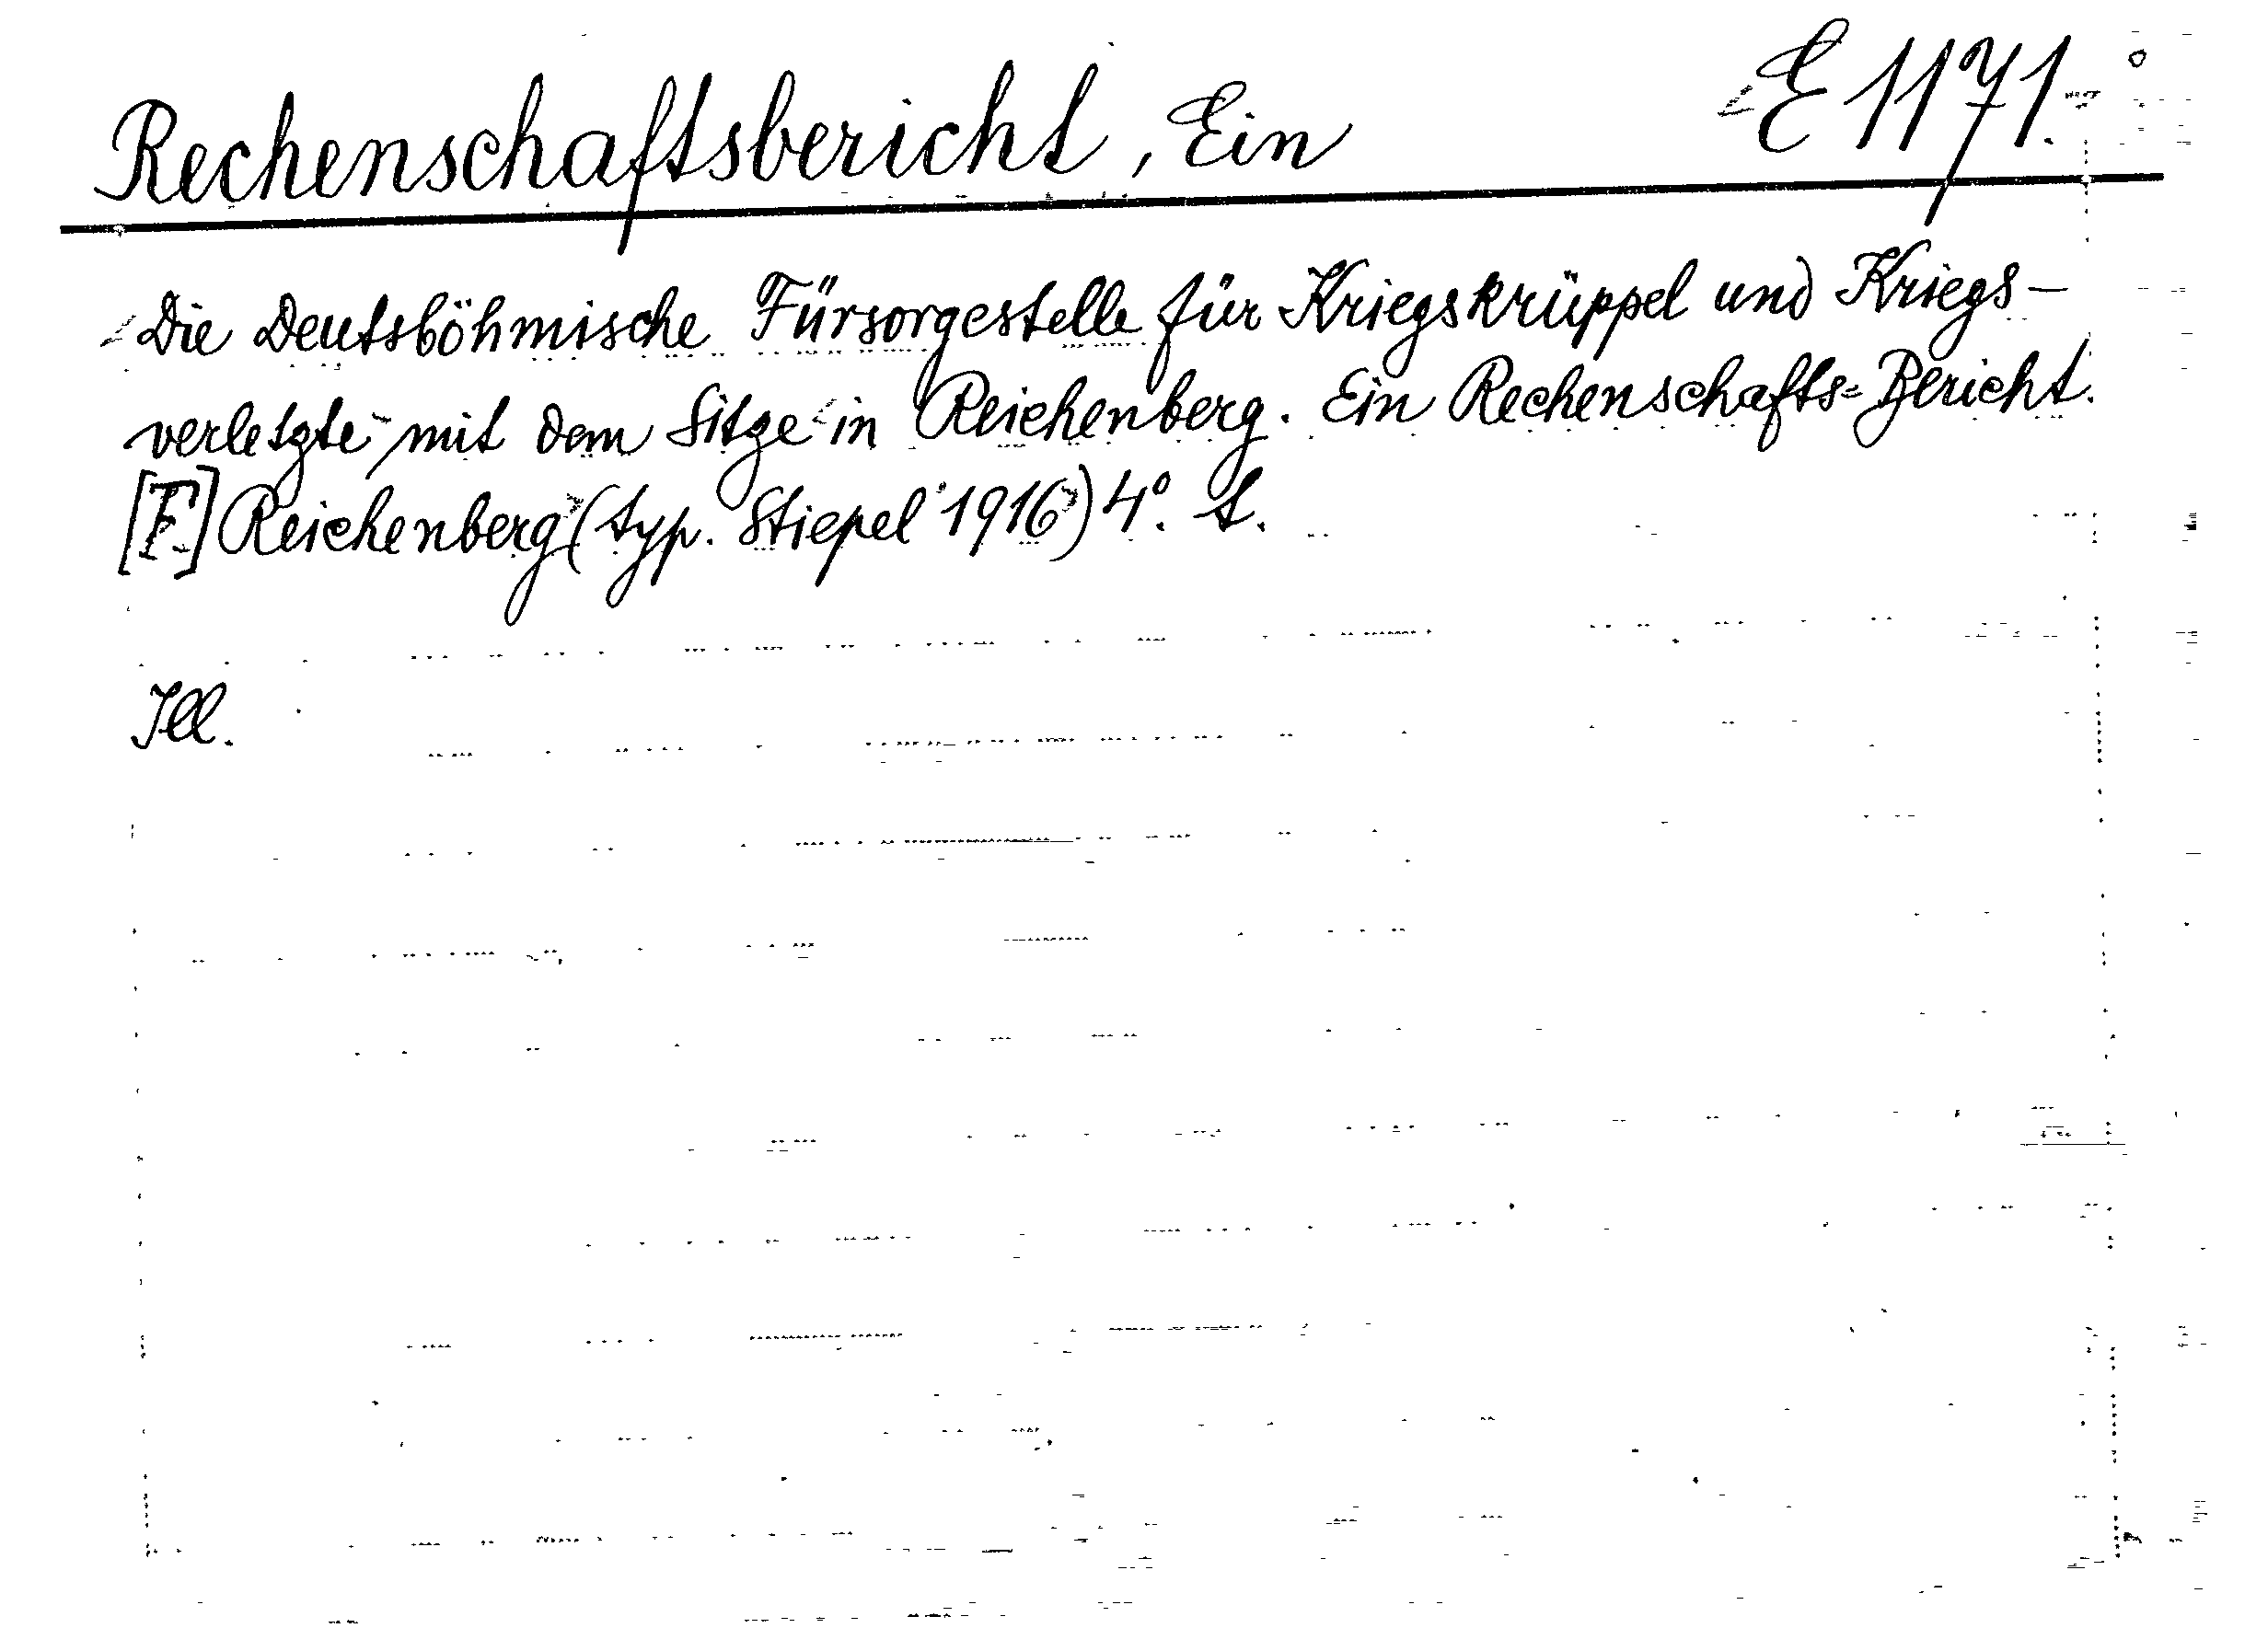 Rechenschaftsbericht, Ein E 1171.
Die Deutsböhmische Fürsorgestelle für Kriegskrüppel und Kriegs-
verletzte mit dem Sitze in Reichenberg. Ein Rechenschafts=Bericht.
[F.] Reichenberg (typ. Stiepel 1916) 4°. S.
Ill.